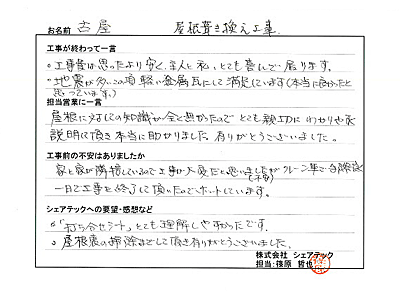 お名前 古屋 屋根葺き換え工事
工事が終わって一言
○工事費は思ったより安く、主人と私、とても喜んで居ります。
○地震が多いこの頃軽い金属瓦にして満足しています(本当に良かったと
思っています。)
担当営業に一言
屋根に対しての知識が全く無かったので とても親切に わかりやすく
説明して頂き本当に助かりました。有りがとうございました。
工事前の不安はありましたか
家と家が隣接しているので工事が大変だと思いましたがクレーン車で
一日で工事を終了して頂いたのでホットしています。
シェアテックへの要望・感想など
○「打ち合せシート」とても理解しやすかったです。
○屋根裏の掃除までして頂き有りがとうございました。
株式会社 シェアテック
担当:篠原 哲也